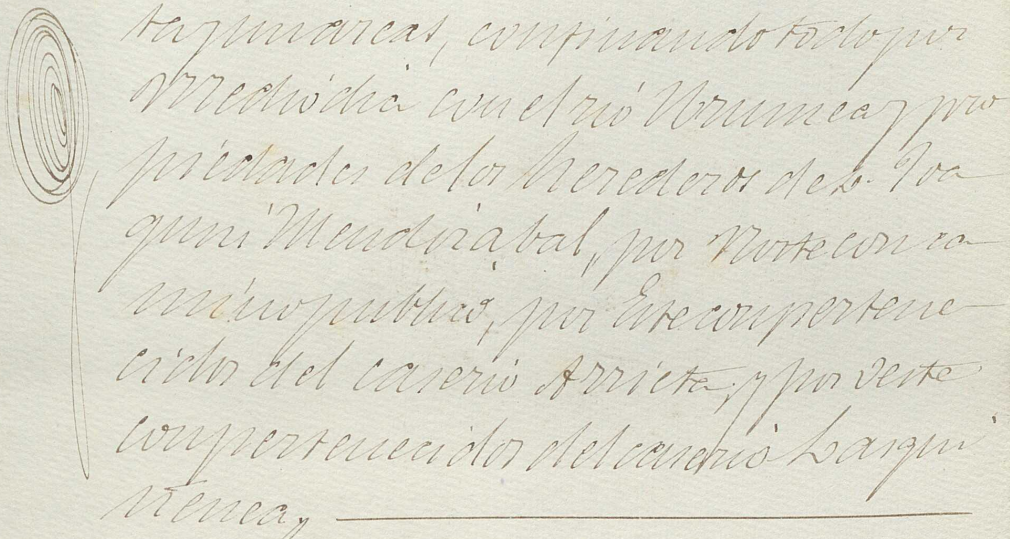 ta y un áreas, confinando todo por
Mediodia con el rió Urumea y pro
piedades de los herederos de D. Joa
quin Mendizabal, por Norte con ca
mino publico, por Este con pertene
cidos del caserio Arrieta, y por Oeste
con pertenecidos del caserio Lasqui
nenea,